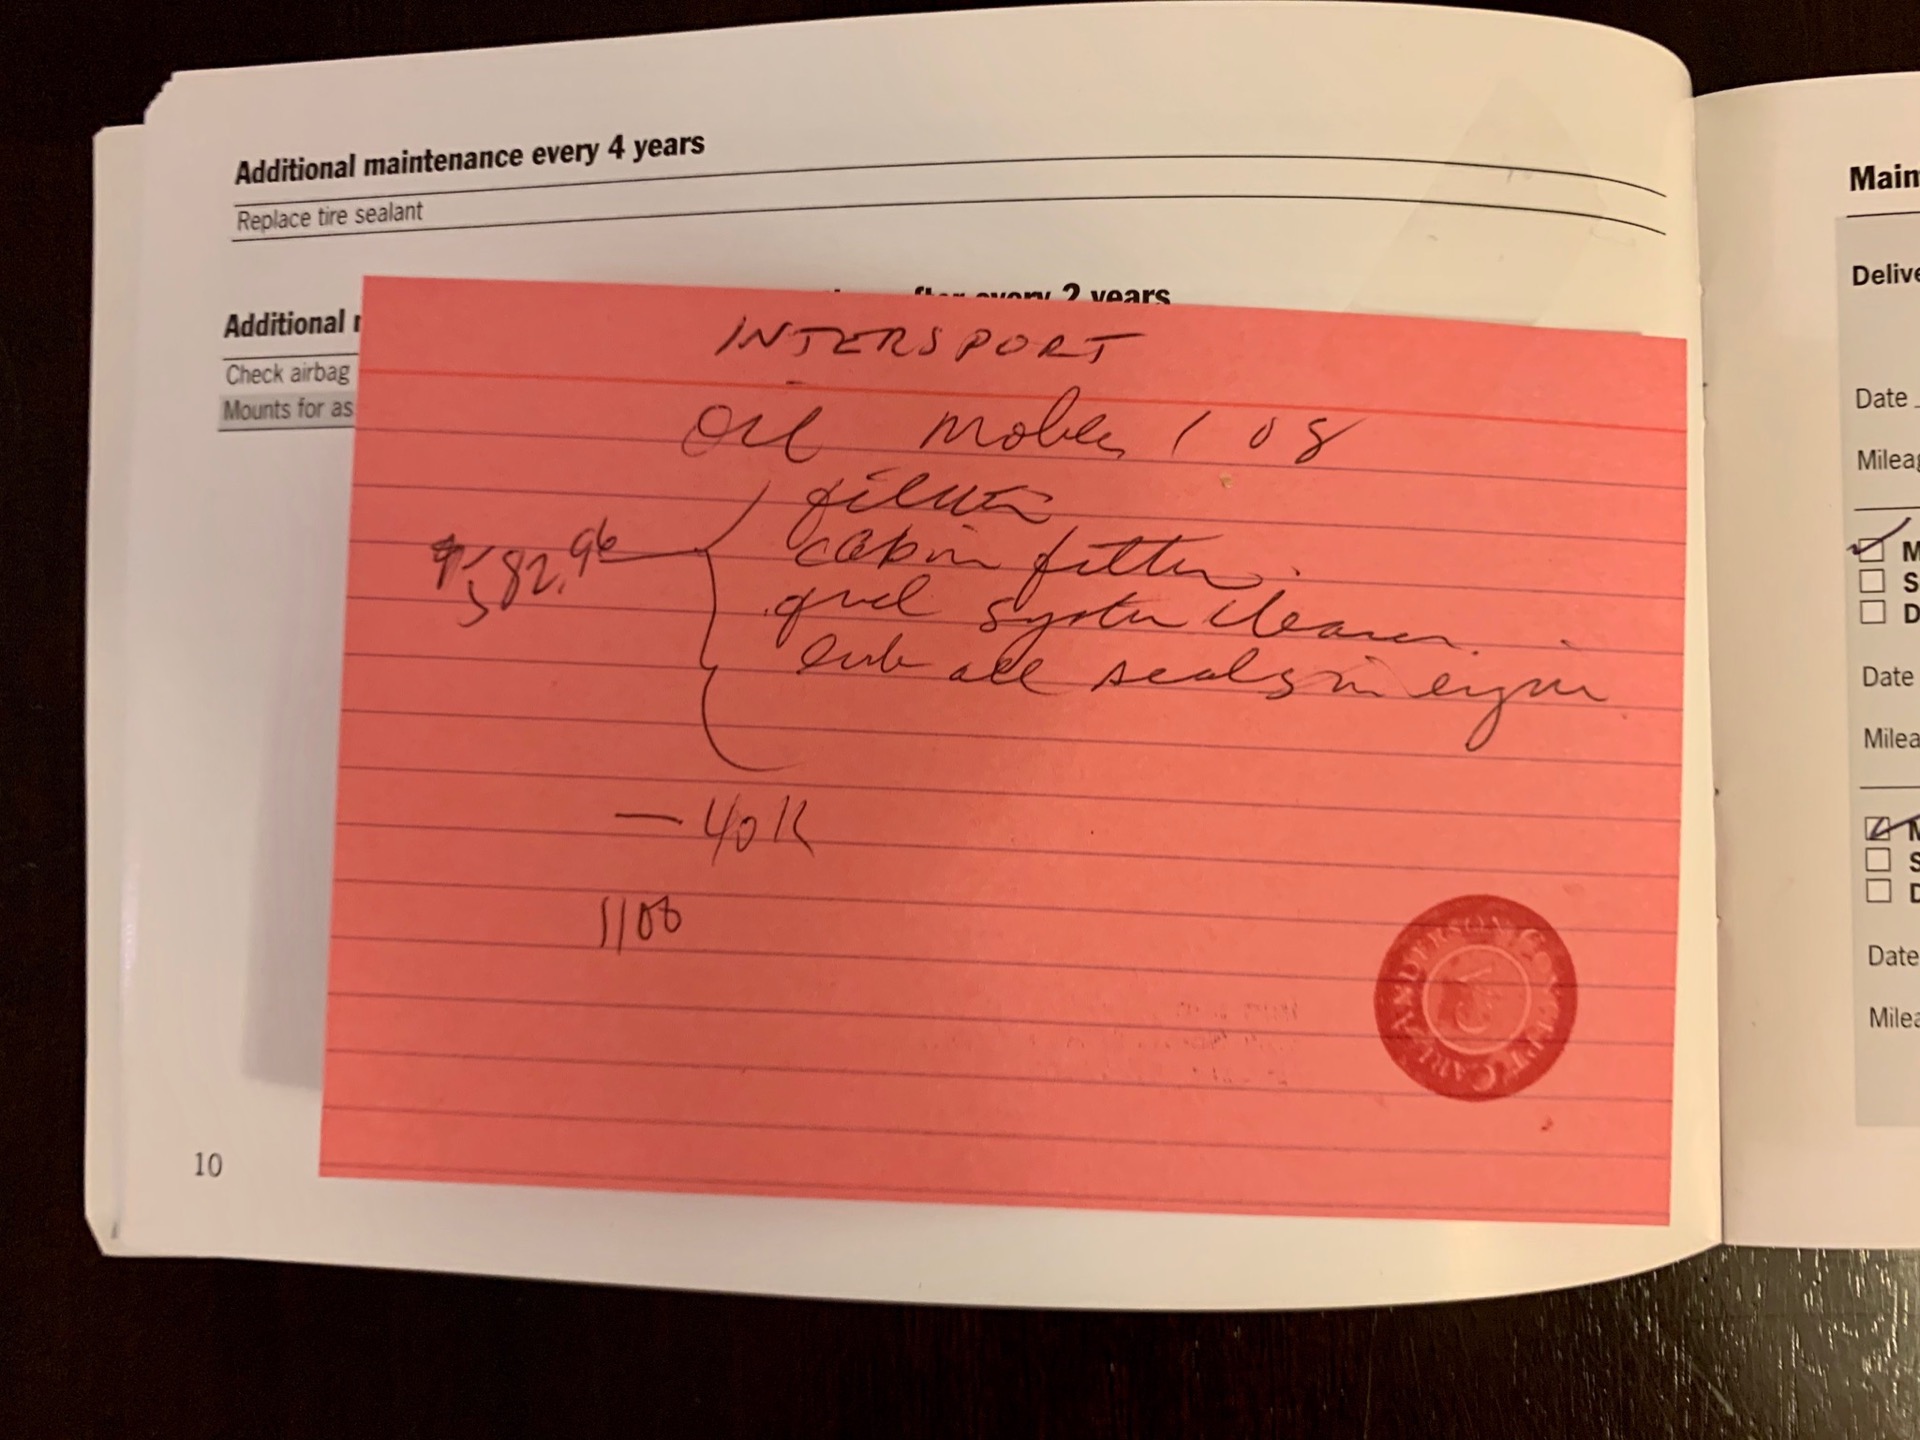 Additional maintenance every 4 years
Replace tire sealant
after every 2 years
Additional
Check airbag
Mounts for as
INTERSPORT
Oil Mobil 1 08
filter
cabin filter
$582.96
fuel system cleaner
lub all seals in engine
— 40K
1100
ANDERSON COVENT CARE
10
Main
Delive
Date
Mileag
M
S
D
Date
Milea
M
S
D
Date
Milea